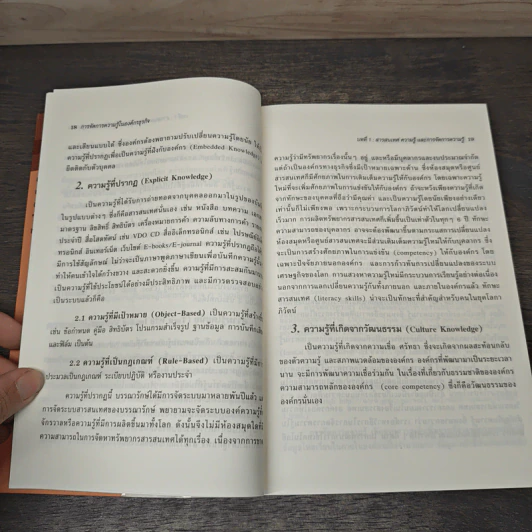 18 การจัดการความรู้ในองค์กรธุรกิจ
และเลียนแบบได้ ซึ่งองค์กรต้องพยายามปรับเปลี่ยนความรู้โดยนัย ให้
ความรู้ที่ปรากฏเพื่อเป็นความรู้ที่ฝังกับองค์กร (Embedded Knowledge
ยึดติดกับตัวบุคคล
2. ความรู้ที่ปรากฏ (Explicit Knowledge)
เป็นความรู้ที่ได้รับการถ่ายทอดจากบุคคลออกมาในรูปของบัน
ในรูปแบบต่างๆ ซึ่งก็คือสารสนเทศนั่นเอง เช่น หนังสือ บทความ เอกสาร
มาตรฐาน สิทธิบัตร เครื่องหมายการค้า ความลับทางการค้า
ประจำปี สื่อโสตทัศน์ เช่น VDO CD สื่ออิเล็กทรอนิกส์ เช่น ไปรษณีย์
ทรอนิกส์ อินเทอร์เน็ต เว็บไซต์ E-books/E-journal ความรู้ที่ปรากฏ
มีการใช้สัญลักษณ์ ไม่ว่าจะเป็นภาพพูดภาษาเขียนเพื่อบันทึกความรู้นั้น
ทำให้คนเข้าใจได้กว้างขวาง และสะดวกยิ่งขึ้น ความรู้ที่มีการสะสมกันมา
เป็นความรู้ที่ใช้ประโยชน์ได้อย่างมีประสิทธิภาพ และมีการตรวจสอบ
เป็นระบบแล้วก็คือ
2.1 ความรู้ที่มีเป้าหมาย (Object-Based) เป็นความรู้ที่สร้าง
เช่น ข้อกำหนด คู่มือ สิทธิบัตร โปรแกรมสำเร็จรูป ฐานข้อมูล การบันทึก
และฟิล์ม เป็นต้น
2.2 ความรู้ที่เป็นกฎเกณฑ์ (Rule-Based) เป็นความรู้ที่มีการ
ประมวลเป็นกฎเกณฑ์ ระเบียบปฏิบัติ หรืองานประจำ
ความรู้ที่ปรากฏนี้ บรรณารักษ์ได้มีการจัดระบบมาหลายพันปีแล้ว
การจัดระบบสารสนเทศของบรรณารักษ์ พยายามจะจัดระบบองค์ความรู้
จักรวาลหรือความรู้ที่มีการผลิตขึ้นมาทั้งโลก ดังนั้นจึงไม่มีห้องสมุดใดที่
ความสามารถในการจัดหาทรัพยากรสารสนเทศได้ทุกเรื่อง เนื่องจากการขาด
บทที่ 1 : สารสนเทศ ความรู้ และการจัดการความรู้ 19
ความรู้ว่ามีทรัพยากรเรื่องนั้นๆ อยู่ และหรือมีบุคลากรและงบประมาณจำกัด
แต่ถ้าเป็นองค์กรทางธุรกิจซึ่งมีเป้าหมายเฉพาะด้าน ซึ่งห้องสมุดหรือศูนย์
สารสนเทศก็มีศักยภาพในการเติมเต็มความรู้ให้กับองค์กร โดยเฉพาะความรู้
ใหม่ที่จะเพิ่มศักยภาพในการแข่งขันให้กับองค์กร ถ้าจะหวังเพียงความรู้ที่เกิด
จากทักษะของบุคคลที่ถือว่ามีคุณค่า และเป็นความรู้โดยนัยเพียงอย่างเดียว
เท่านั้นก็ไม่เพียงพอ เพราะกระบวนการโลกาภิวัตน์ทำให้โลกเปลี่ยนแปลง
เร็วมาก การผลิตทรัพยากรสารสนเทศก็เพิ่มขึ้นเป็นเท่าตัวในทุกๆ 5 ปี ทักษะ
ความสามารถของบุคลากร อาจจะต้องพัฒนาขึ้นตามกระแสการเปลี่ยนแปลง
ห้องสมุดหรือศูนย์สารสนเทศจะมีส่วนเติมเต็มความรู้ใหม่ให้กับบุคลากร ซึ่ง
จะเป็นการสร้างศักยภาพในการแข่งขัน (competency) ให้กับองค์กร โดย
เฉพาะปัจจัยภายนอกองค์กร และการก้าวทันการเปลี่ยนแปลงของระบบ
เศรษฐกิจของโลก การแสวงหาความรู้ใหม่มีกระบวนการเรียนรู้อย่างต่อเนื่อง
นอกจากการแลกเปลี่ยนความรู้กันทั้งภายนอก และภายในองค์กรแล้ว ทักษะ
สารสนเทศ (literacy skills) น่าจะเป็นทักษะที่สำคัญสำหรับคนในยุคโลกา
ภิวัตน์
3. ความรู้ที่เกิดจากวัฒนธรรม (Culture Knowledge)
เป็นความรู้ที่เกิดจากความเชื่อ ศรัทธา ซึ่งเกิดจากผลสะท้อนกลับ
ของตัวความรู้ และสภาพแวดล้อมขององค์กร องค์กรที่พัฒนามาเป็นระยะเวลา
นาน จะมีการพัฒนาความเชื่อร่วมกัน ในเรื่องที่เกี่ยวกับธรรมชาติขององค์กร
ความสามารถหลักขององค์กร (core competency) ซึ่งก็คือวัฒนธรรมของ
องค์กรนั่นเอง